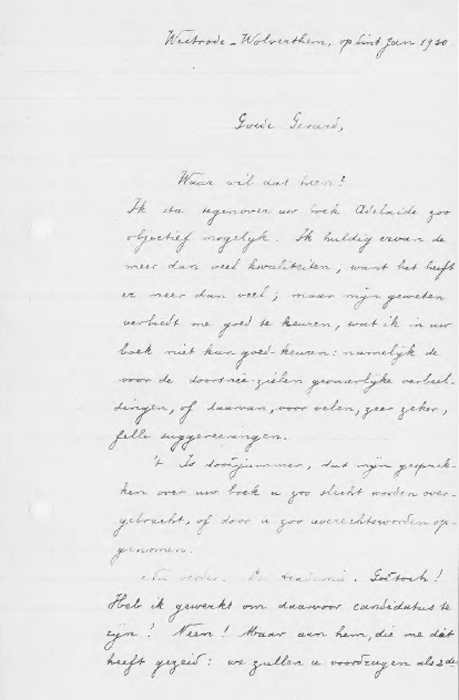 Westrode - Wolverthem, op Sint Jan 1930
Goede Gerard,
Waar wil dat heen?
Ik sta tegenover uw boek Adelaïde zoo
objectief mogelijk. Ik huldig ervan de
meer dan veel kwaliteiten, want het heeft
er meer dan veel; maar mijn geweten
verbiedt me goed te keuren, wat ik in uw
boek niet kan goed-keuren: namelijk de
voor de doorsnee-zielen gevaarlijke verbeel-
dingen, of daarvan, voor velen, zeer zeker,
felle suggereeringen.
't Is doodjammer, dat mijn gesprek-
ken over uw boek u zoo slecht worden over-
gebracht, of door u zoo averechts worden op-
genomen.
Nu verder. De Academie. Godtoch!
Heb ik gewerkt om daarvoor candidatus te
zijn? Neen! Maar aan hem, die me dàt
heeft gezeid: we zullen u voordragen als 2de